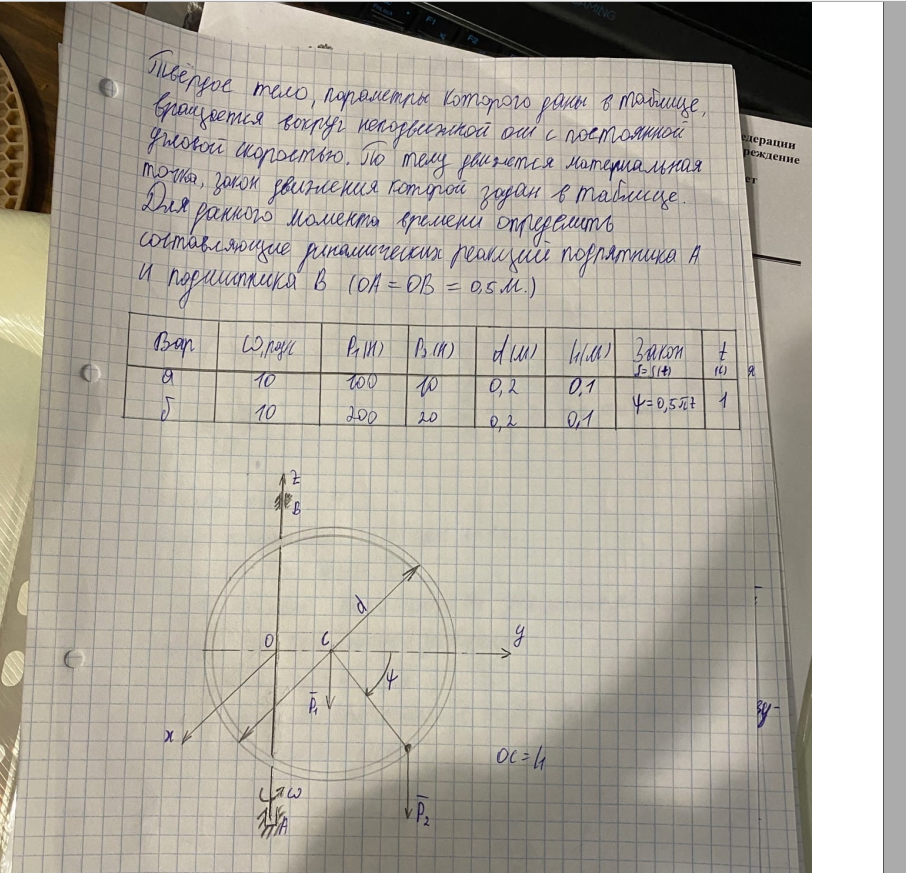 GAMING
F1
F2
Твёрдое тело, параметры которого даны в таблице,
вращается вокруг неподвижной оси с постоянной
угловой скоростью. По телу движется материальная
точка, закон движения которой задан в таблице.
Для данного момента времени определить
составляющие динамических реакций подпятника А
и подшипника В (OA = OB = 0,5 м.)
едерации
реждение
Вар ω, рад/с P₁(Н) P₂(Н) d(м) h(м) Закон t
S=S(t) (с)
а 10 100 10 0,2 0,1 ψ=0,5πt 1
б 10 200 20 0,2 0,1
z
B
d
O C y
ψ
P̅₁
x
OC=h
ω
A P̅₂